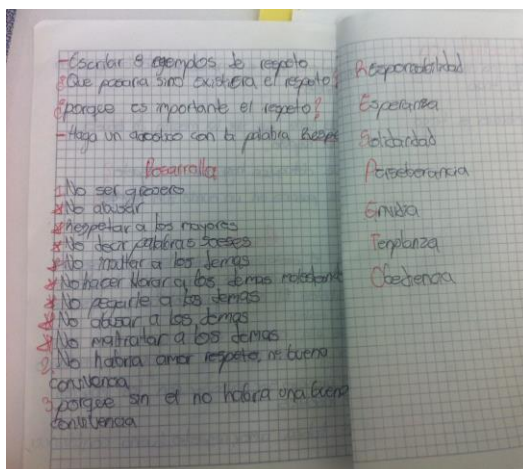 -Escribir 8 ejemplos de respeto
¿Que pasaria sino existiera el respeto?
¿porque es importante el respeto?
-Haga un acostico con la palabra
Desarrollo
1 No ser grosero
* No abusar
* Respetar a los mayores
* No decir palabras soeses
* No maltar a los demas
* No hacer llorar a los demas molestando
* No pegarle a los demas
* No abusar a los demas
* No maltratar a los demas
2 No habria amor respeto, ni buena
convivencia
3 porque sin el no habra una buena
convivencia
Responsabilidad
Esperanza
Solidaridad
Perseberancia
Envidia
Templanza
Obediencia